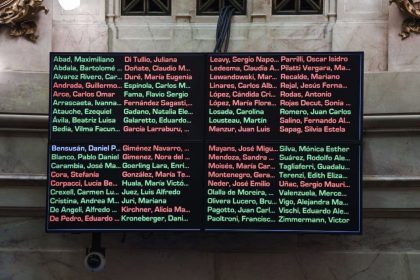 Abad, Maximiliano
Abdala, Bartolomé ...
Alvarez Rivero, Car...
Andrada, Guillermo...
Arce, Carlos Omar
Arrascaeta, Ivanna...
Atauche, Ezequiel
Ávila, Beatriz Luisa
Bedia, Vilma Facun...
Di Tullio, Juliana
Doñate, Claudio M...
Duré, María Eugenia
Espínola, Carlos M...
Fama, Flavio Sergio
Fernández Sagasti,...
Gadano, Natalia Ele...
Galaretto, Eduardo...
García Larraburu, ...
Leavy, Sergio Napo...
Ledesma, Claudia A...
Lewandowski, Mar...
Linares, Carlos Alb...
López, Cándida Cri...
López, María Flore...
Losada, Carolina
Lousteau, Martín
Manzur, Juan Luis
Parrilli, Oscar Isidro
Pilatti Vergara, Ma...
Recalde, Mariano
Rejal, Jesús Ferna...
Rodas, Antonio
Rojas Decut, Sonia ...
Romero, Juan Carlos
Salino, Fernando Al...
Sapag, Silvia Estela
Bensusán, Daniel P...
Blanco, Pablo Daniel
Carambia, José Ma...
Cora, Stefanía
Corpacci, Lucía Be...
Crexell, Carmen Lu...
Cristina, Andrea M...
De Angeli, Alfredo ...
De Pedro, Eduardo ...
Giménez Navarro, ...
Giménez, Nora del ...
Goerling Lara, Enri...
González, María Te...
Huala, María Victó...
Juez, Luis Alfredo
Juri, Mariana
Kirchner, Alicia Ma...
Kroneberger, Dani...
Mayans, José Migu...
Mendoza, Sandra ...
Moisés, María Car...
Montenegro, Gera...
Neder, José Emilio
Olalla de Moreira, ...
Olivera Lucero, Bru...
Pagotto, Juan Carl...
Paoltroni, Francisc...
Silva, Mónica Esther
Suárez, Rodolfo Ale...
Tagliaferri, Guadalu...
Terenzi, Edith Eliza...
Uñac, Sergio Mauri...
Valenzuela, Merce...
Vigo, Alejandra Ma...
Vischi, Eduardo Ale...
Zimmermann, Víctor